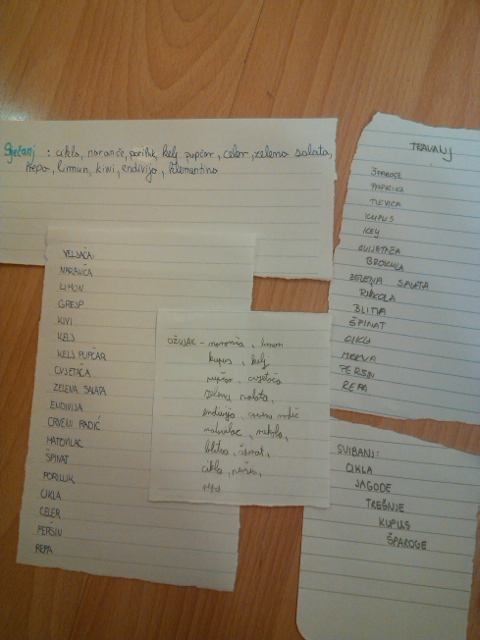 Siječanj : cikla, naranče, poriluk, kelj pupčar, celer, zelena salata,
repa, limun, kivi, endivija, klementina
VELJAČA:
NARANČA
LIMUN
GREJP
KIVI
KELJ
KELJ PUPČAR
CVJETAČA
ZELENA SALATA
ENDIVIJA
CRVENI RADIČ
MATOVILAC
ŠPINAT
PORILUK
CIKLA
CELER
PERŠIN
REPA
OŽUJAK - naranča, limun
kupus, kelj
pupčar, cvjetača
zelena salata,
endivija, crveni radič
matovilac, rukola,
blitva, špinat,
cikla, peršin,
repa
TRAVANJ
ŠPAROGE
PAPRIKA
TIKVICA
KUPUS
KELJ
CVIJETAČA
BROKULA
ZELENA SALATA
RUKOLA
BLITVA
ŠPINAT
CIKLA
MRKVA
PERŠIN
REPA
SVIBANJ:
CIKLA
JAGODE
TREŠNJE
KUPUS
ŠPAROGE